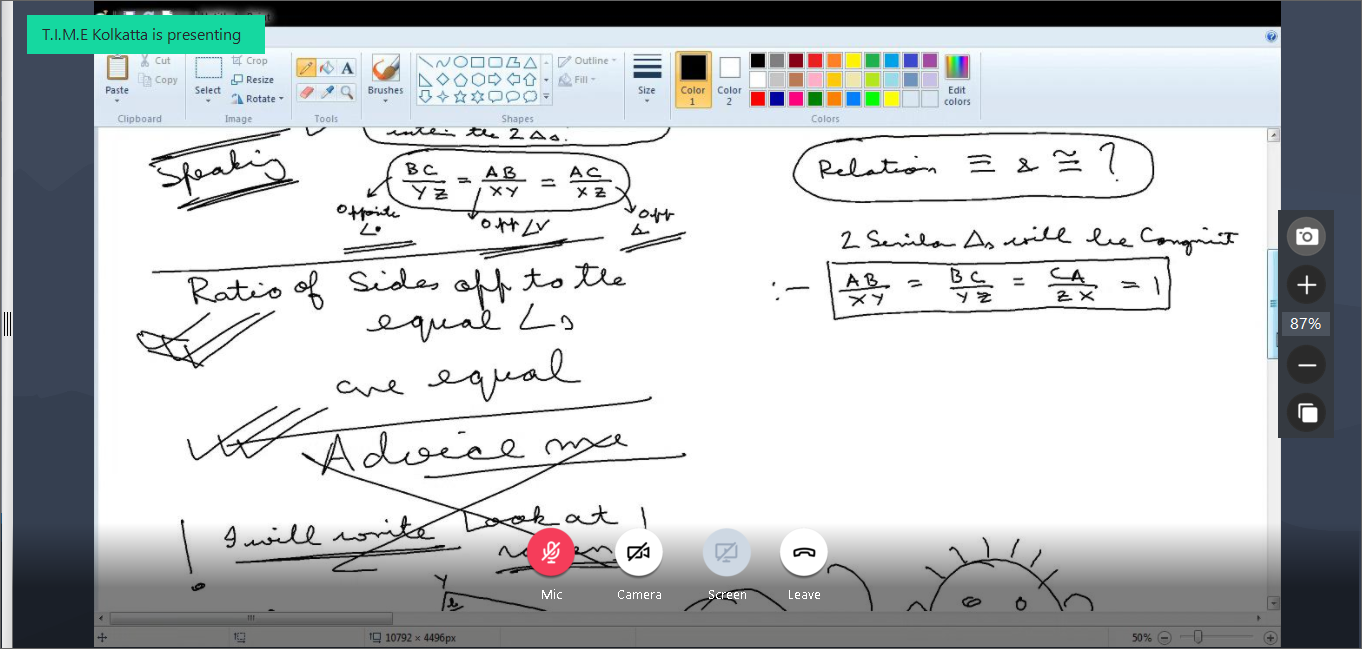 T.I.M.E Kolkatta is presenting
Paste
Cut
Copy
Clipboard
Select
Crop
Resize
Rotate
Image
Tools
Brushes
Shapes
Outline
Fill
Size
Color 1
Color 2
Edit colors
Colors
the 2 Δs.
Speaking
BC/YZ = AB/XY = AC/XZ
Opposite ∠•
opp
opp
Ratio of Sides opp to the
equal ∠s
are equal
Advice
I will write Look at
Y
Relation ≡ & ≅ ?
2 Similar Δs will be Congruit
:- AB/XY = BC/YZ = CA/ZX = 1
87%
Mic
Camera
Screen
Leave
10792 × 4496px
50%